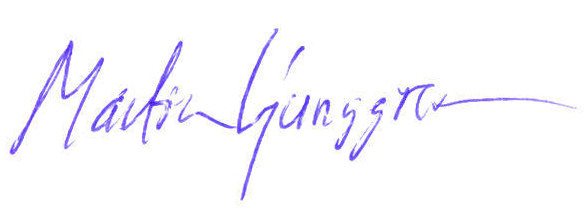 Martin Ljunggren